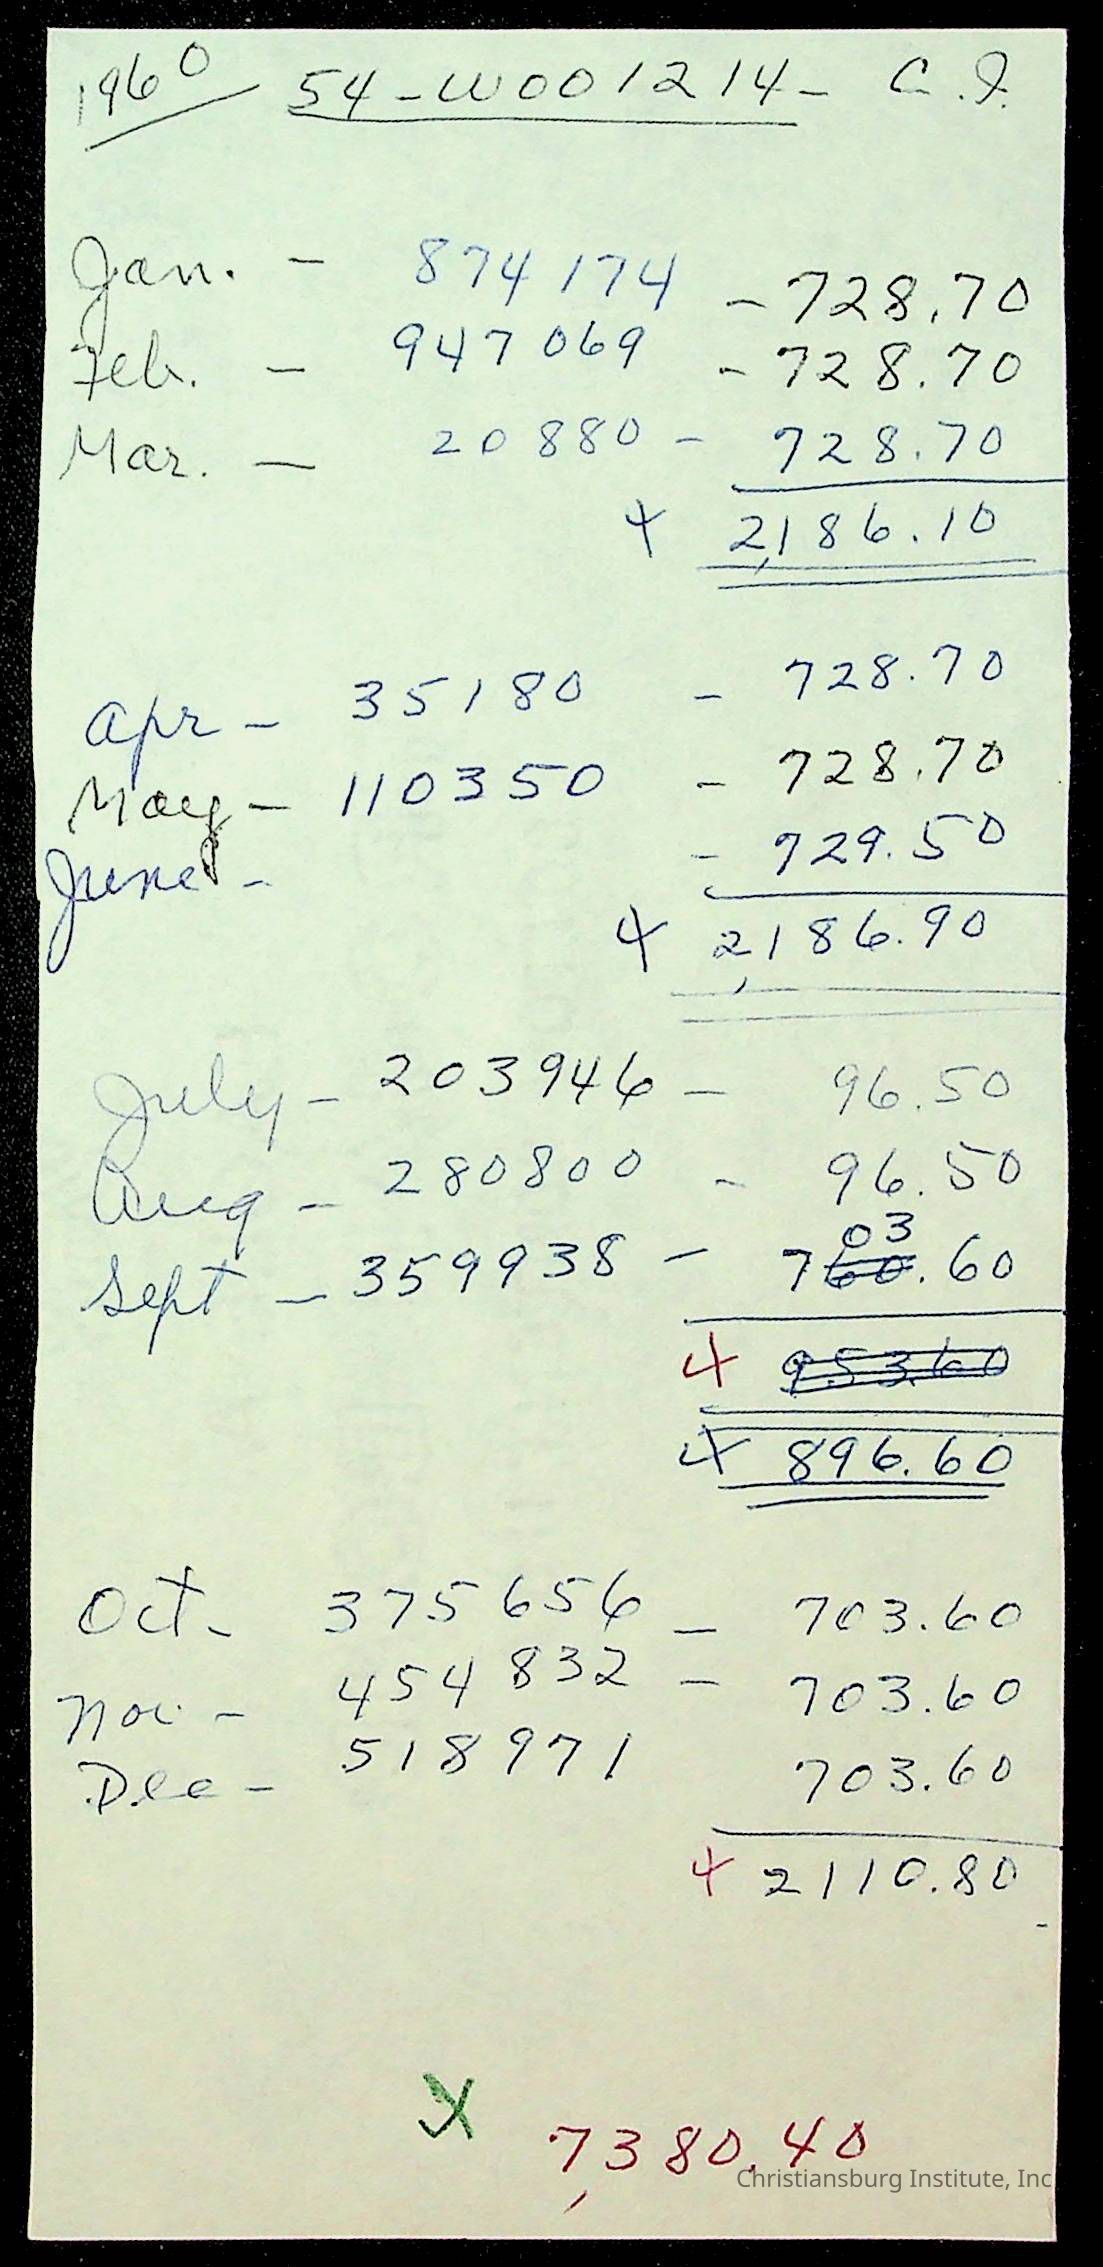 1960 54-W001214- C.I.
Jan. - 874174 - 728.70
Feb. - 947069 - 728.70
Mar. - 20880 - 728.70
2,186.10
Apr - 35180 - 728.70
May - 110350 - 728.70
June - - 729.50
2,186.90
July - 203946 - 96.50
Aug - 280800 - 96.50
03
Sept - 359938 - 760.60
953.60
896.60
Oct - 375656 - 703.60
Nov - 454832 - 703.60
Dec - 518971 703.60
2110.80
X 7,380.40
Christiansburg Institute, Inc